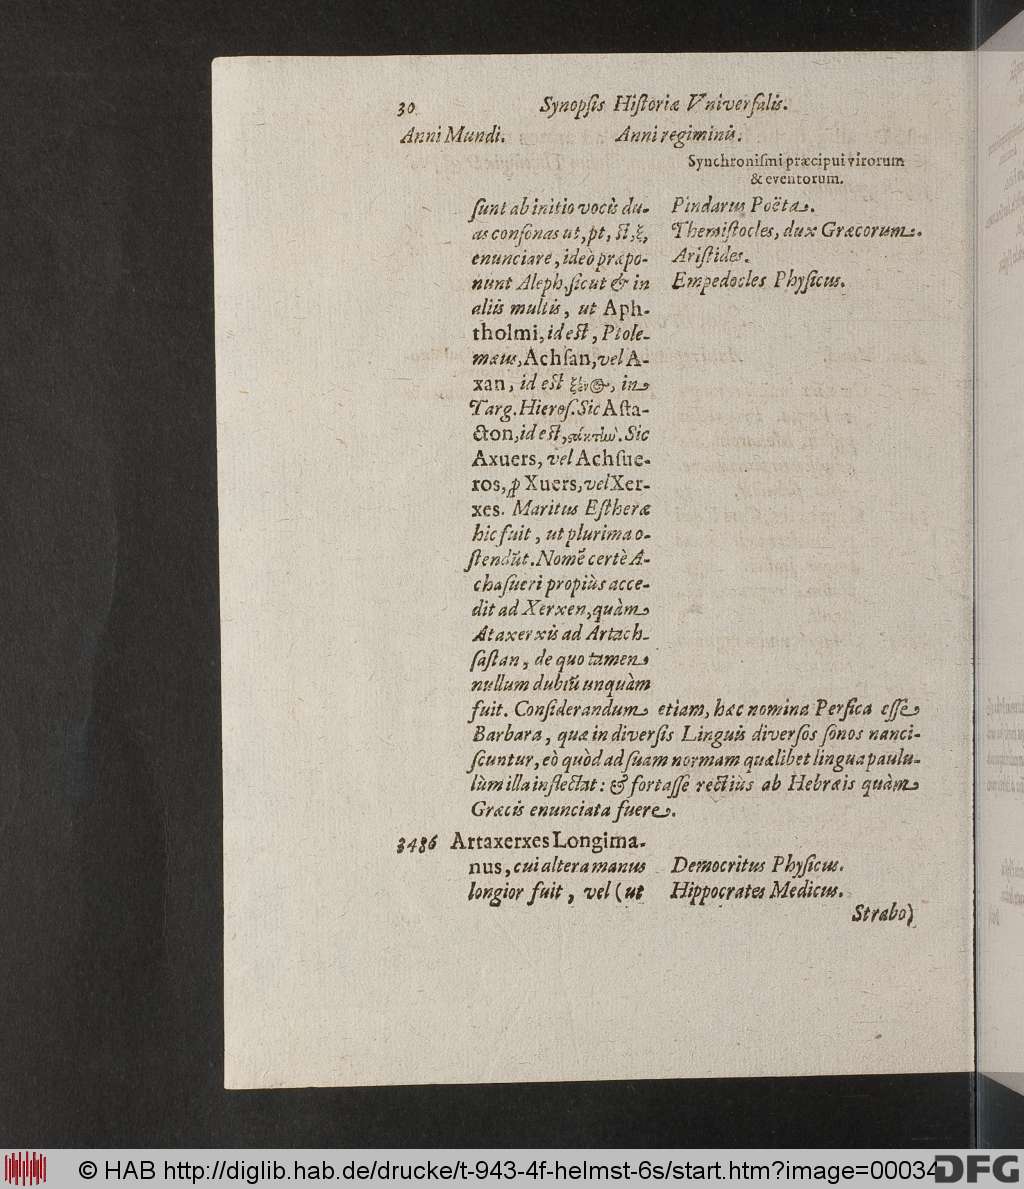 30 Synopſis Hiſtoriæ Vniverſalis.
Anni Mundi. Anni regiminis.
Synchroniſmi præcipui virorum
& eventorum.
ſunt ab initio vocis du-
as conſonas ut, pt, ſt, ξ,
enunciare, ideò præpo-
nunt Aleph, ſicut & in
aliis multis, ut Aph-
tholmi, id eſt, Ptole-
mæus, Achſan, vel A-
xan, id est in
Targ. Hieroſ. Sic Aſta-
cton, id eſt, Sic
Axuers, vel Achſue-
ros, ꝓ Xuers, vel Xer-
xes. Maritus Eſtheræ
hic fuit, ut plurima o-
ſtendūt. Nomē certè A-
chaſueri propiùs acce-
dit ad Xerxen, quàm
Ataxerxis ad Artach-
ſaſtan, de quo tamen
nullum dubiū unquàm
Pindarus Poëta.
Themiſtocles, dux Græcorum.
Ariſtides.
Empedocles Phyſicus.
fuit. Conſiderandum etiam, hæc nomina Perſica eſſe
Barbara, quæ in diverſis Linguis diverſos ſonos nanci-
ſcuntur, eò quòd ad ſuam normam quælibet lingua paulu-
lùm illa inflectat: & fortaſſe rectiùs ab Hebræis quàm
Græcis enunciata fuere.
3486 Artaxerxes Longima-
nus, cui altera manus
longior fuit, vel (ut
Democritus Phyſicus.
Hippocrates Medicus.
Strabo)
© HAB http://diglib.hab.de/drucke/t-943-4f-helmst-6s/start.htm?image=00034
DFG